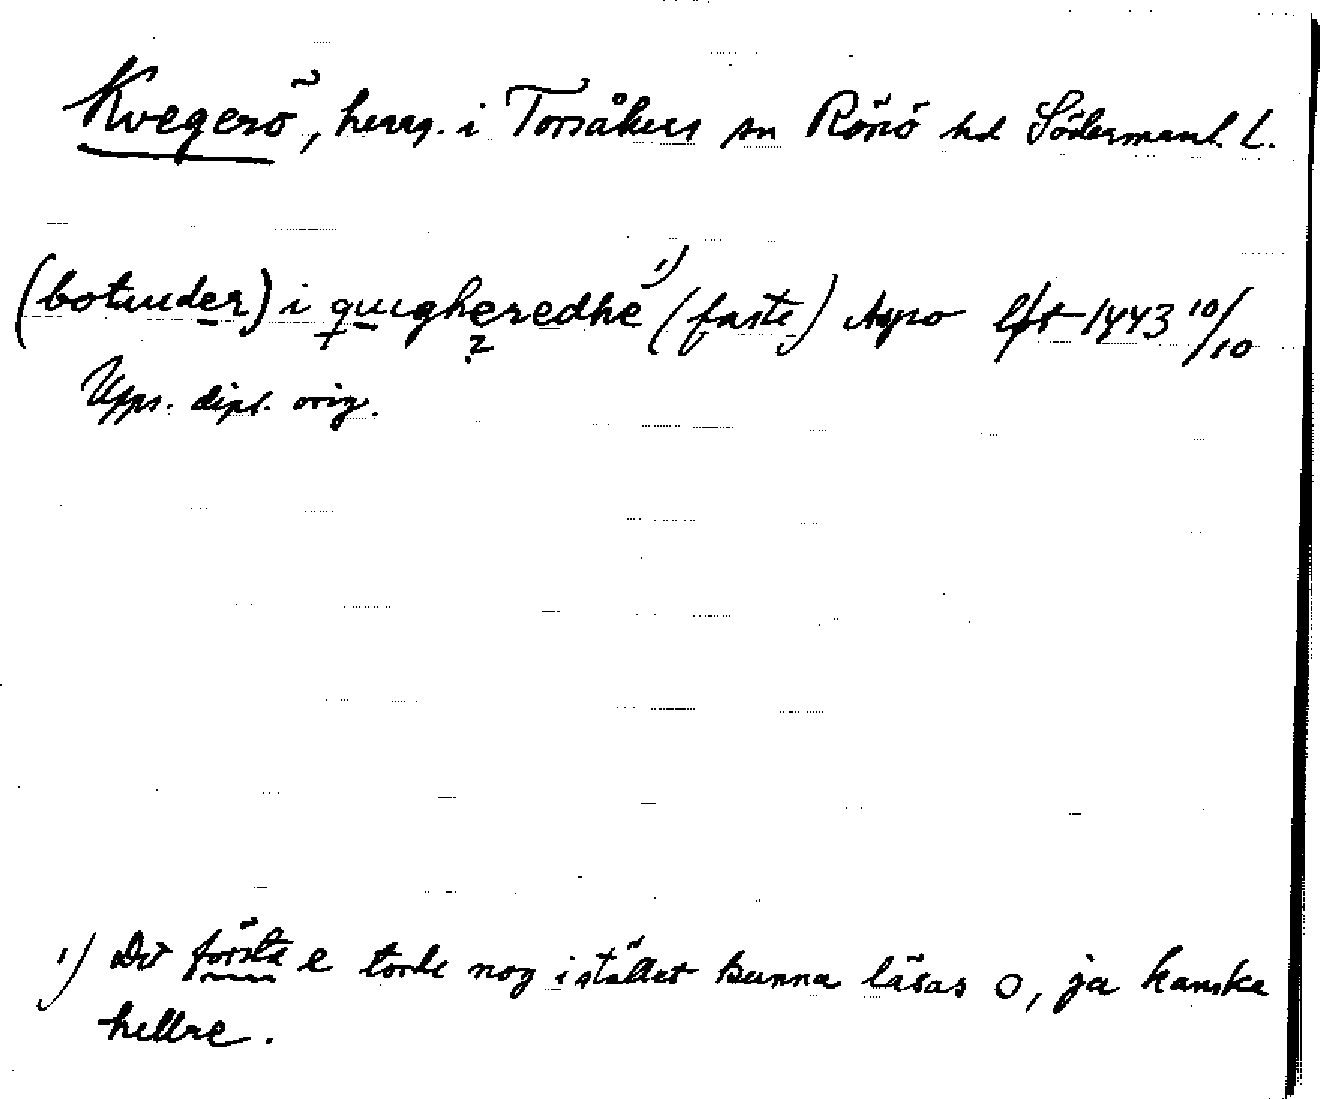 Kvegerö, herrg. i Torsåkers sn Rönö hd Södermanl. L.
(botuider) i quigheredhe ¹⁾ (faste) Aspo Eft 1443 10/10
?
Upps. dipl. orig.
¹⁾ Det första e torde nog istället kunna läsas o, ja kanske
hellre.